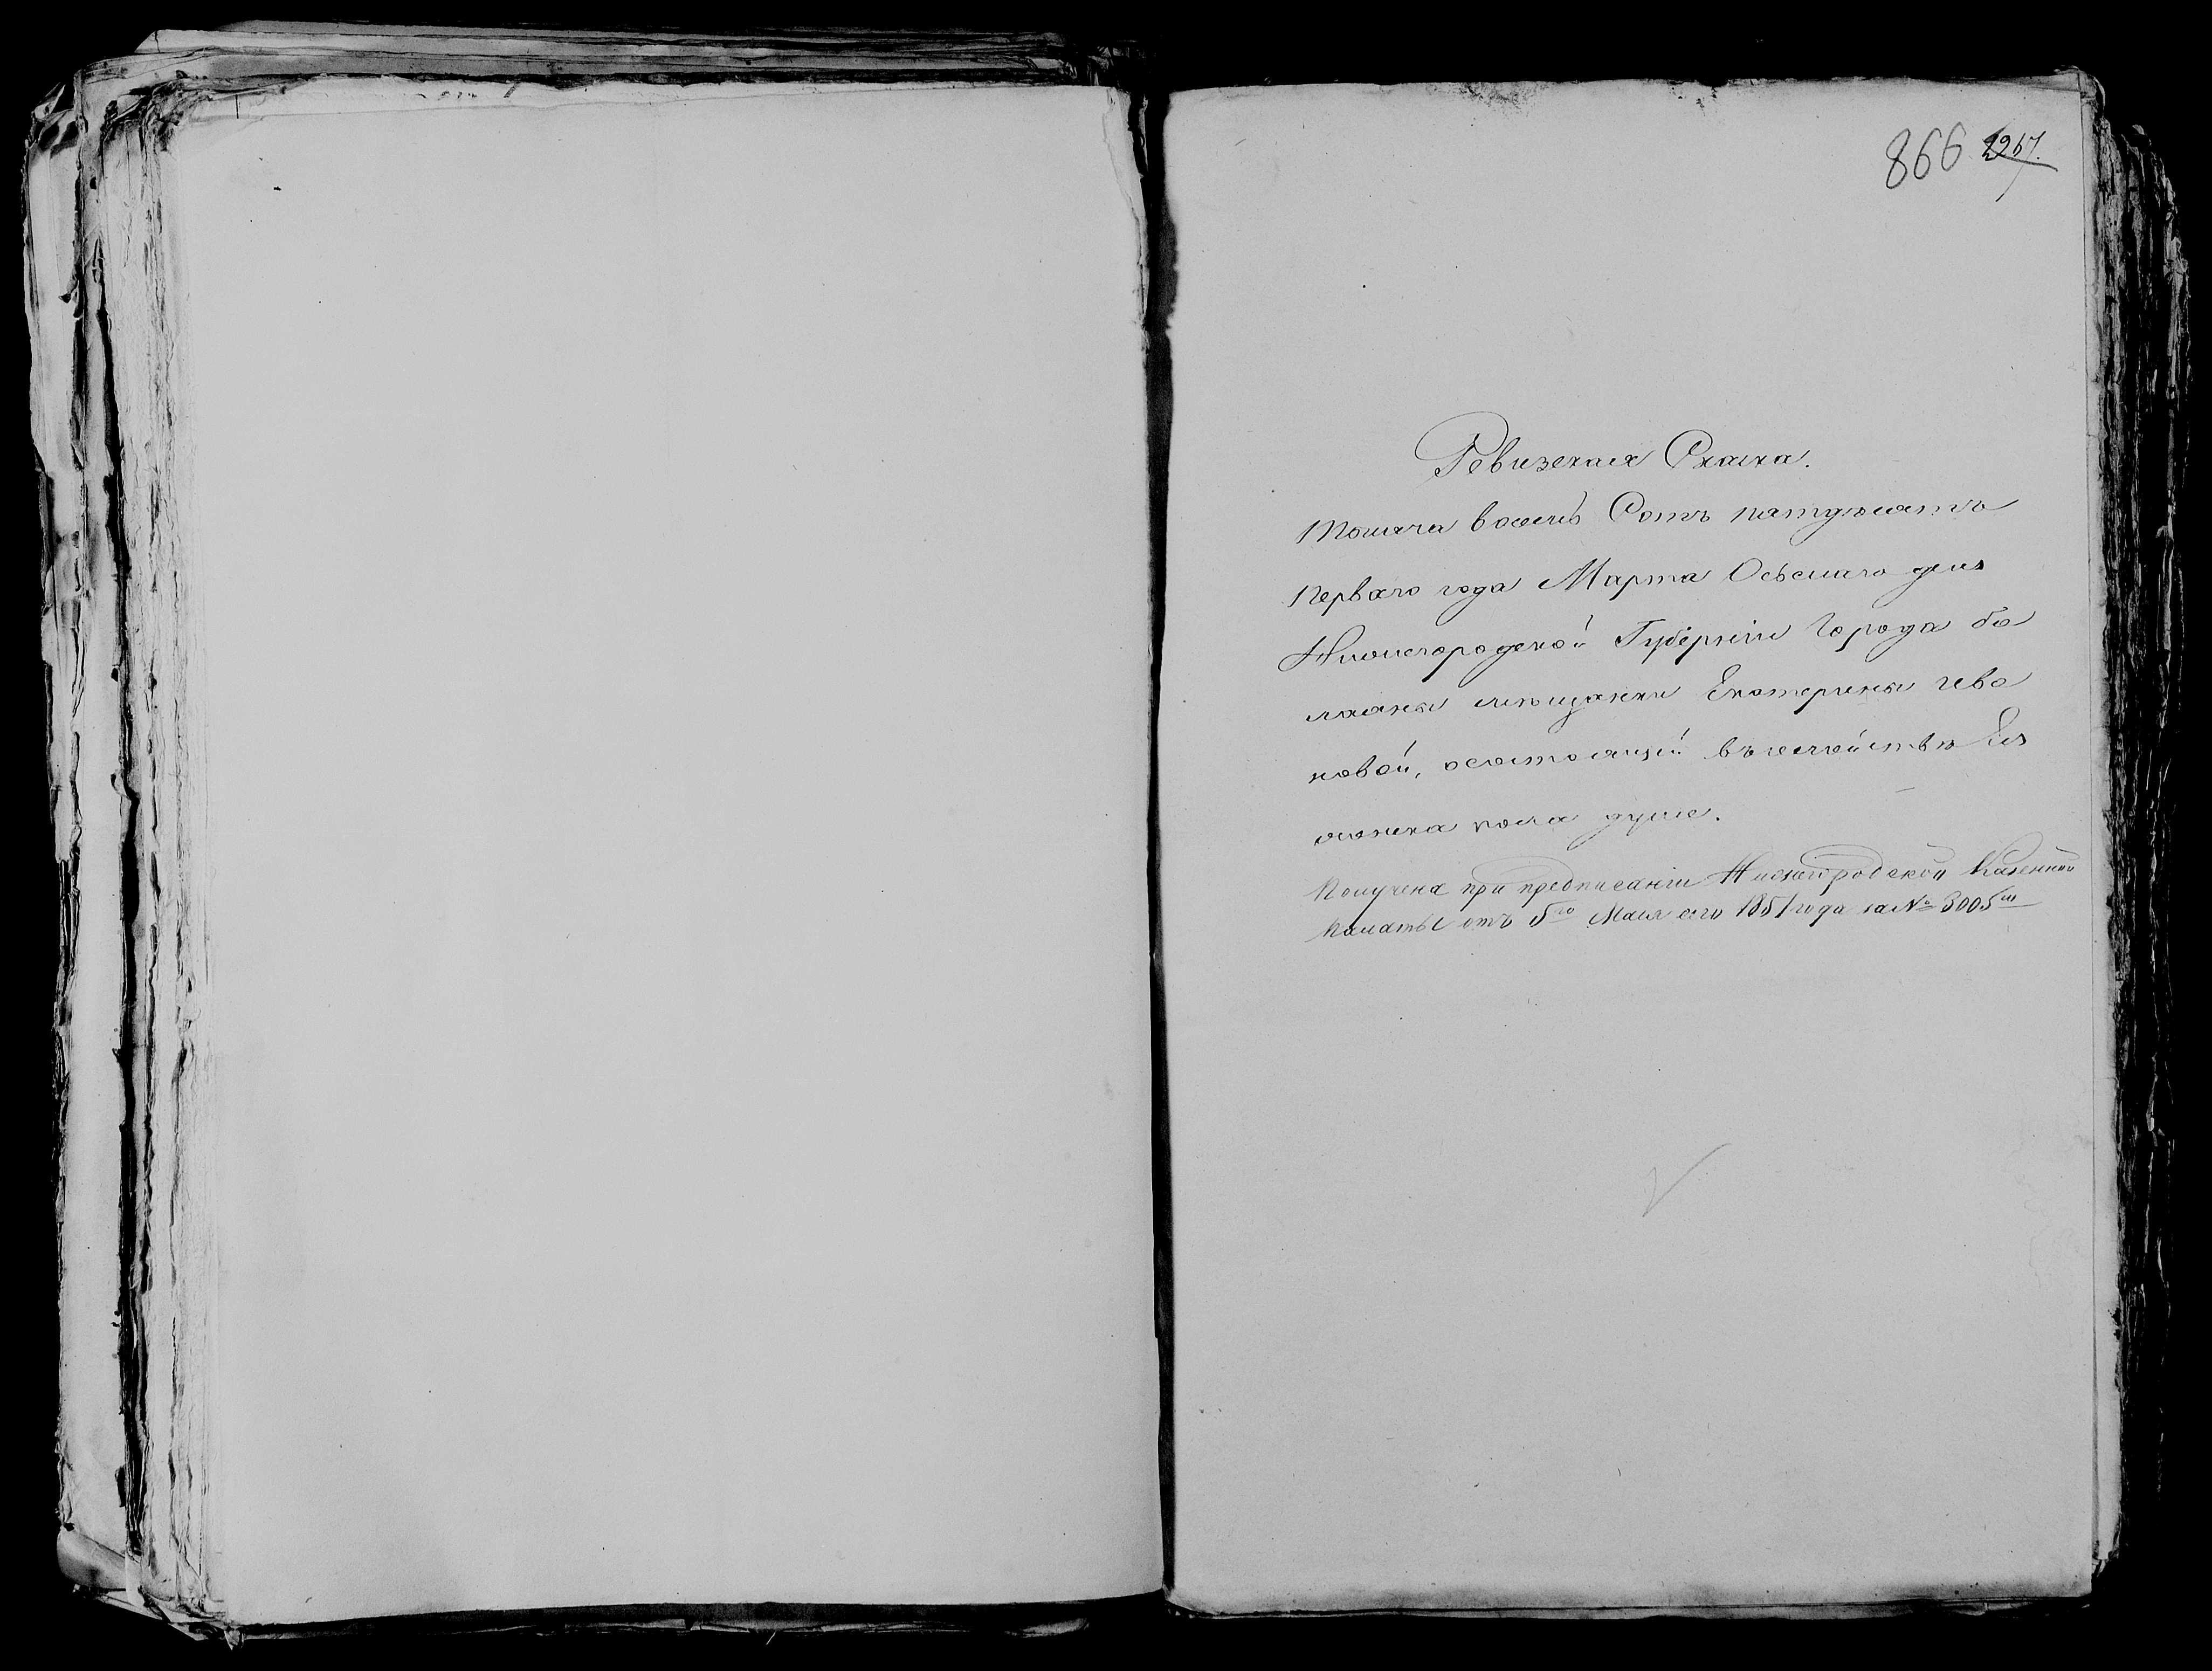 866 1267.
Ревизская Скаска.
Тысяча восемь Сотъ пятдесятъ
перваго года Марта Осьмаго дня
Нижегородской Губерніи Города Ба
лахны мѣщанки Екатерины
новой, о состоящей въ семействѣ Ея
женска пола душе.
Получена при предписаніи Нижегородской Казенной
Палаты отъ 5го Мая сего 1851 года за № 3005мъ